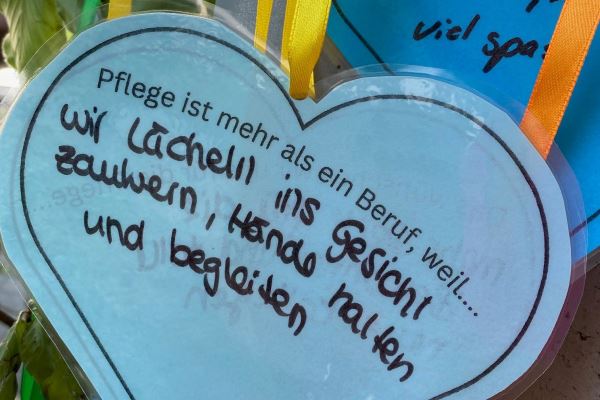 viel spas
Pflege ist mehr als ein Beruf, weil....
wir Lächeln ins Gesicht
zaubern, Hände halten
und begleiten